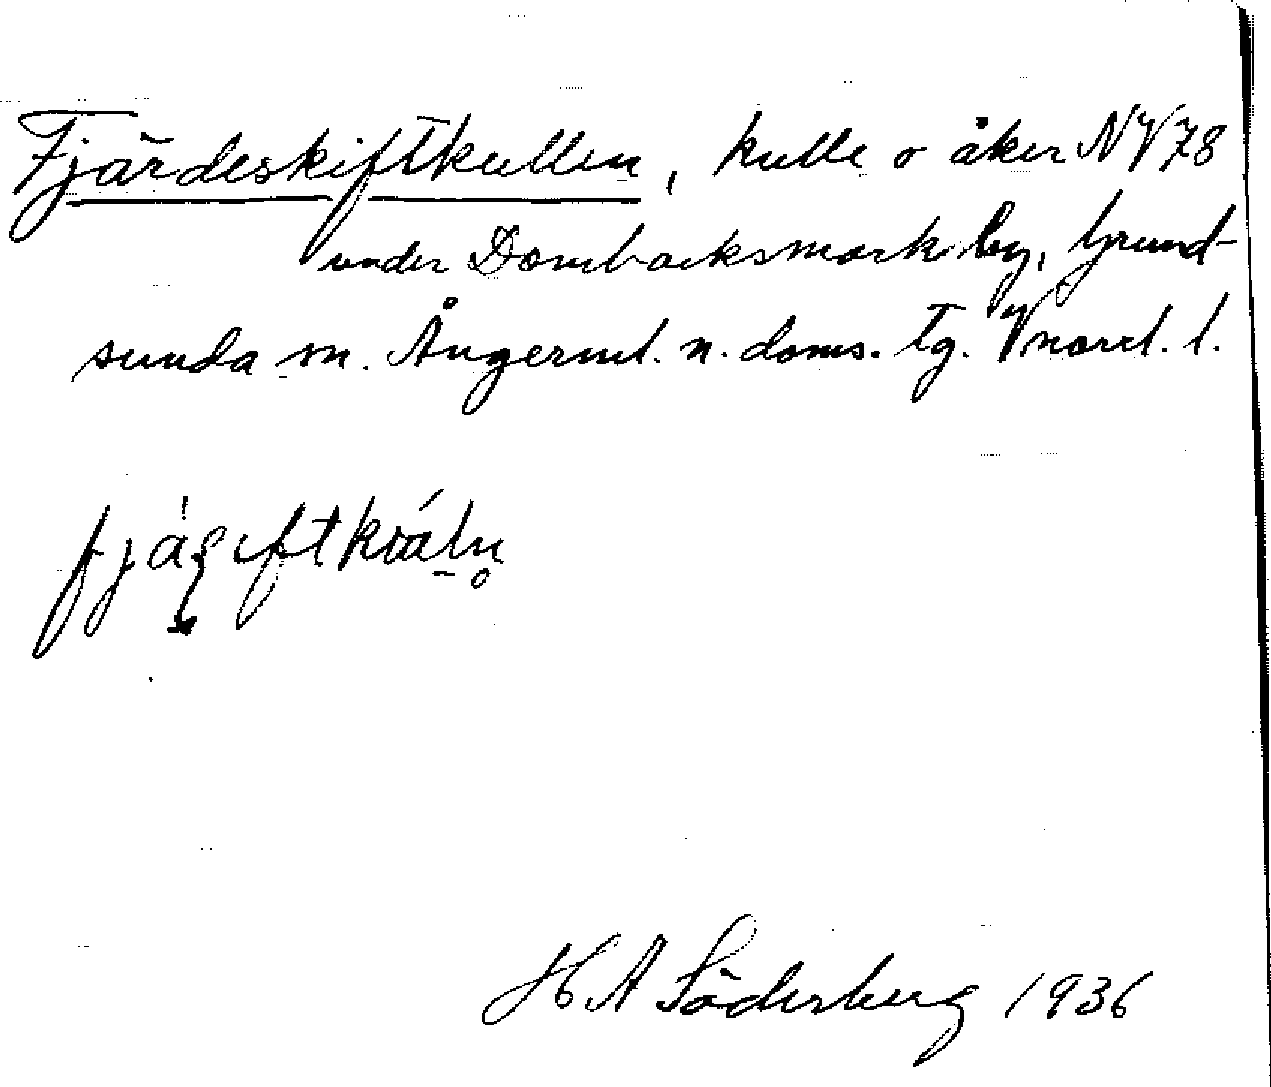 Fjärdeskiftkullen, kulle o åker NV78
under Dombäcksmark by, Grund-
sunda sn. Ångerml. n. doms. tg. Vnorrl. l.
H A Söderberg 1936